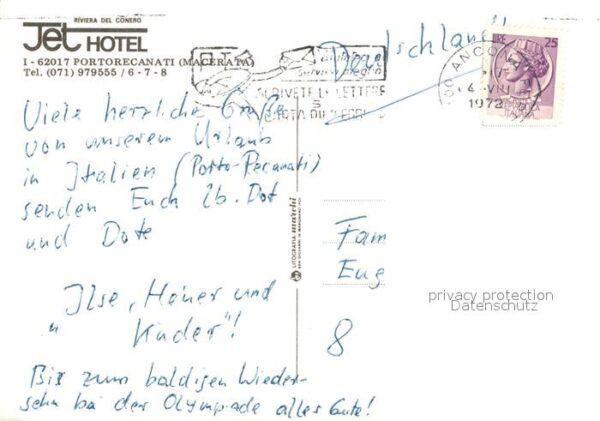 RIVIERA DEL CONERO
Jet HOTEL
I - 62017 PORTORECANATI (MACERATA)
Tel. (071) 979555 / 6 - 7 - 8
Deutschland!
LIRE 25
ANCONA
1972
SCRIVETE LETTERE
ITALIA
Viele herzliche Grüße
von unserem Urlaub
in Italien (Porto-Recanati)
senden Euch lb. Dot
und Dote
Ilse, Heiner und
" Kinder"!
Bis zum baldigen Wieder-
sehn bei der Olympiade alles Gute!
LITOGRAFIA marchi
Fam
Eug
8
privacy protection
Datenschutz